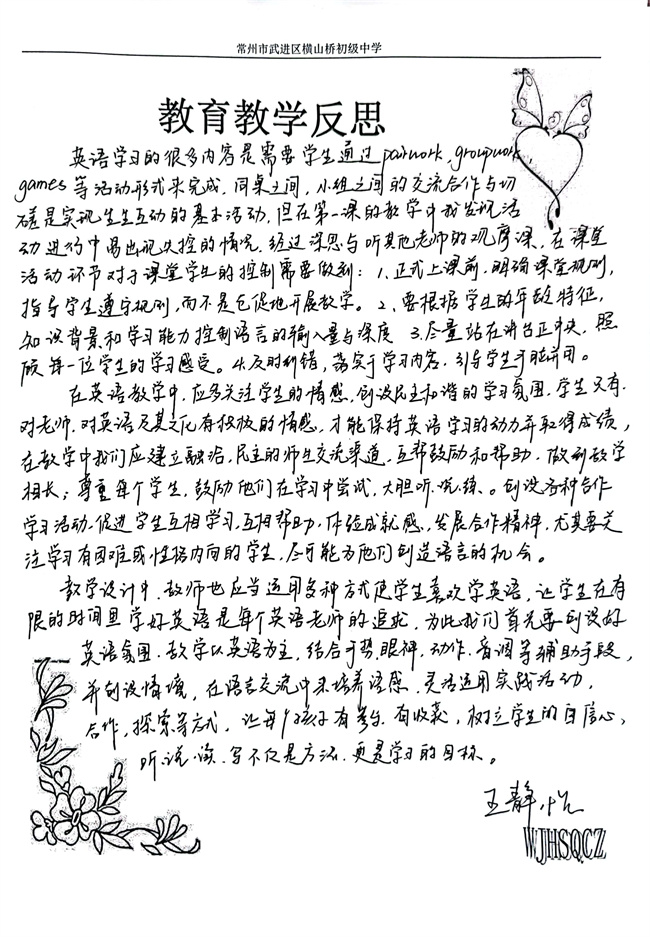 常州市武进区横山桥初级中学
教育教学反思
英语学习的很多内容是需要学生通过pairwork、groupwork
games等活动形式来完成,同桌之间,小组之间的交流合作与切
磋是实现生生互动的基本活动,但在第一课的教学中我发现活
动进行中易出现失控的情况,经过深思与听其他老师的观摩课,在课堂
活动环节对于课堂学生的控制需要做到:1、正式上课前,明确课堂规则,
指导学生遵守规则,而不是仓促地开展教学。2、要根据学生的年龄特征,
知识背景和学习能力控制语言的输入量与深度 3、尽量站在讲台正中央,照
顾每一位学生的学习感受。4、及时纠错,落实于学习内容,引导学生
在英语教学中,应多关注学生的情感,创设民主和谐的学习氛围,学生只有
对老师,对英语及其文化有积极的情感,才能保持英语学习的动力并取得成绩,
在教学中我们应建立融洽,民主的师生交流渠道,互帮鼓励和帮助,做到教学
相长;尊重每个学生,鼓励他们在学习中尝试,大胆听、说、练。创设各种合作
学习活动,促进学生互相学习,互相帮助,体验成就感,发展合作精神,尤其要关
注学习有困难或性格内向的学生,尽可能为他们创造语言的机会。
教学设计中,教师也应当运用多种方式使学生喜欢学英语,让学生在有
限的时间里学好英语是每个英语老师的追求,为此我们首先要创设好
英语氛围,教学以英语为主,结合手势、眼神、动作、音调等辅助手段,
并创设情境,在语言交流中来培养语感,灵活运用实践活动,
合作,探索等方式,让每个孩子有参与、有收获,树立学生的自信心,
听、说、读、写不仅是方法,更是学习的目标。
王静怡
WJHSQCZ